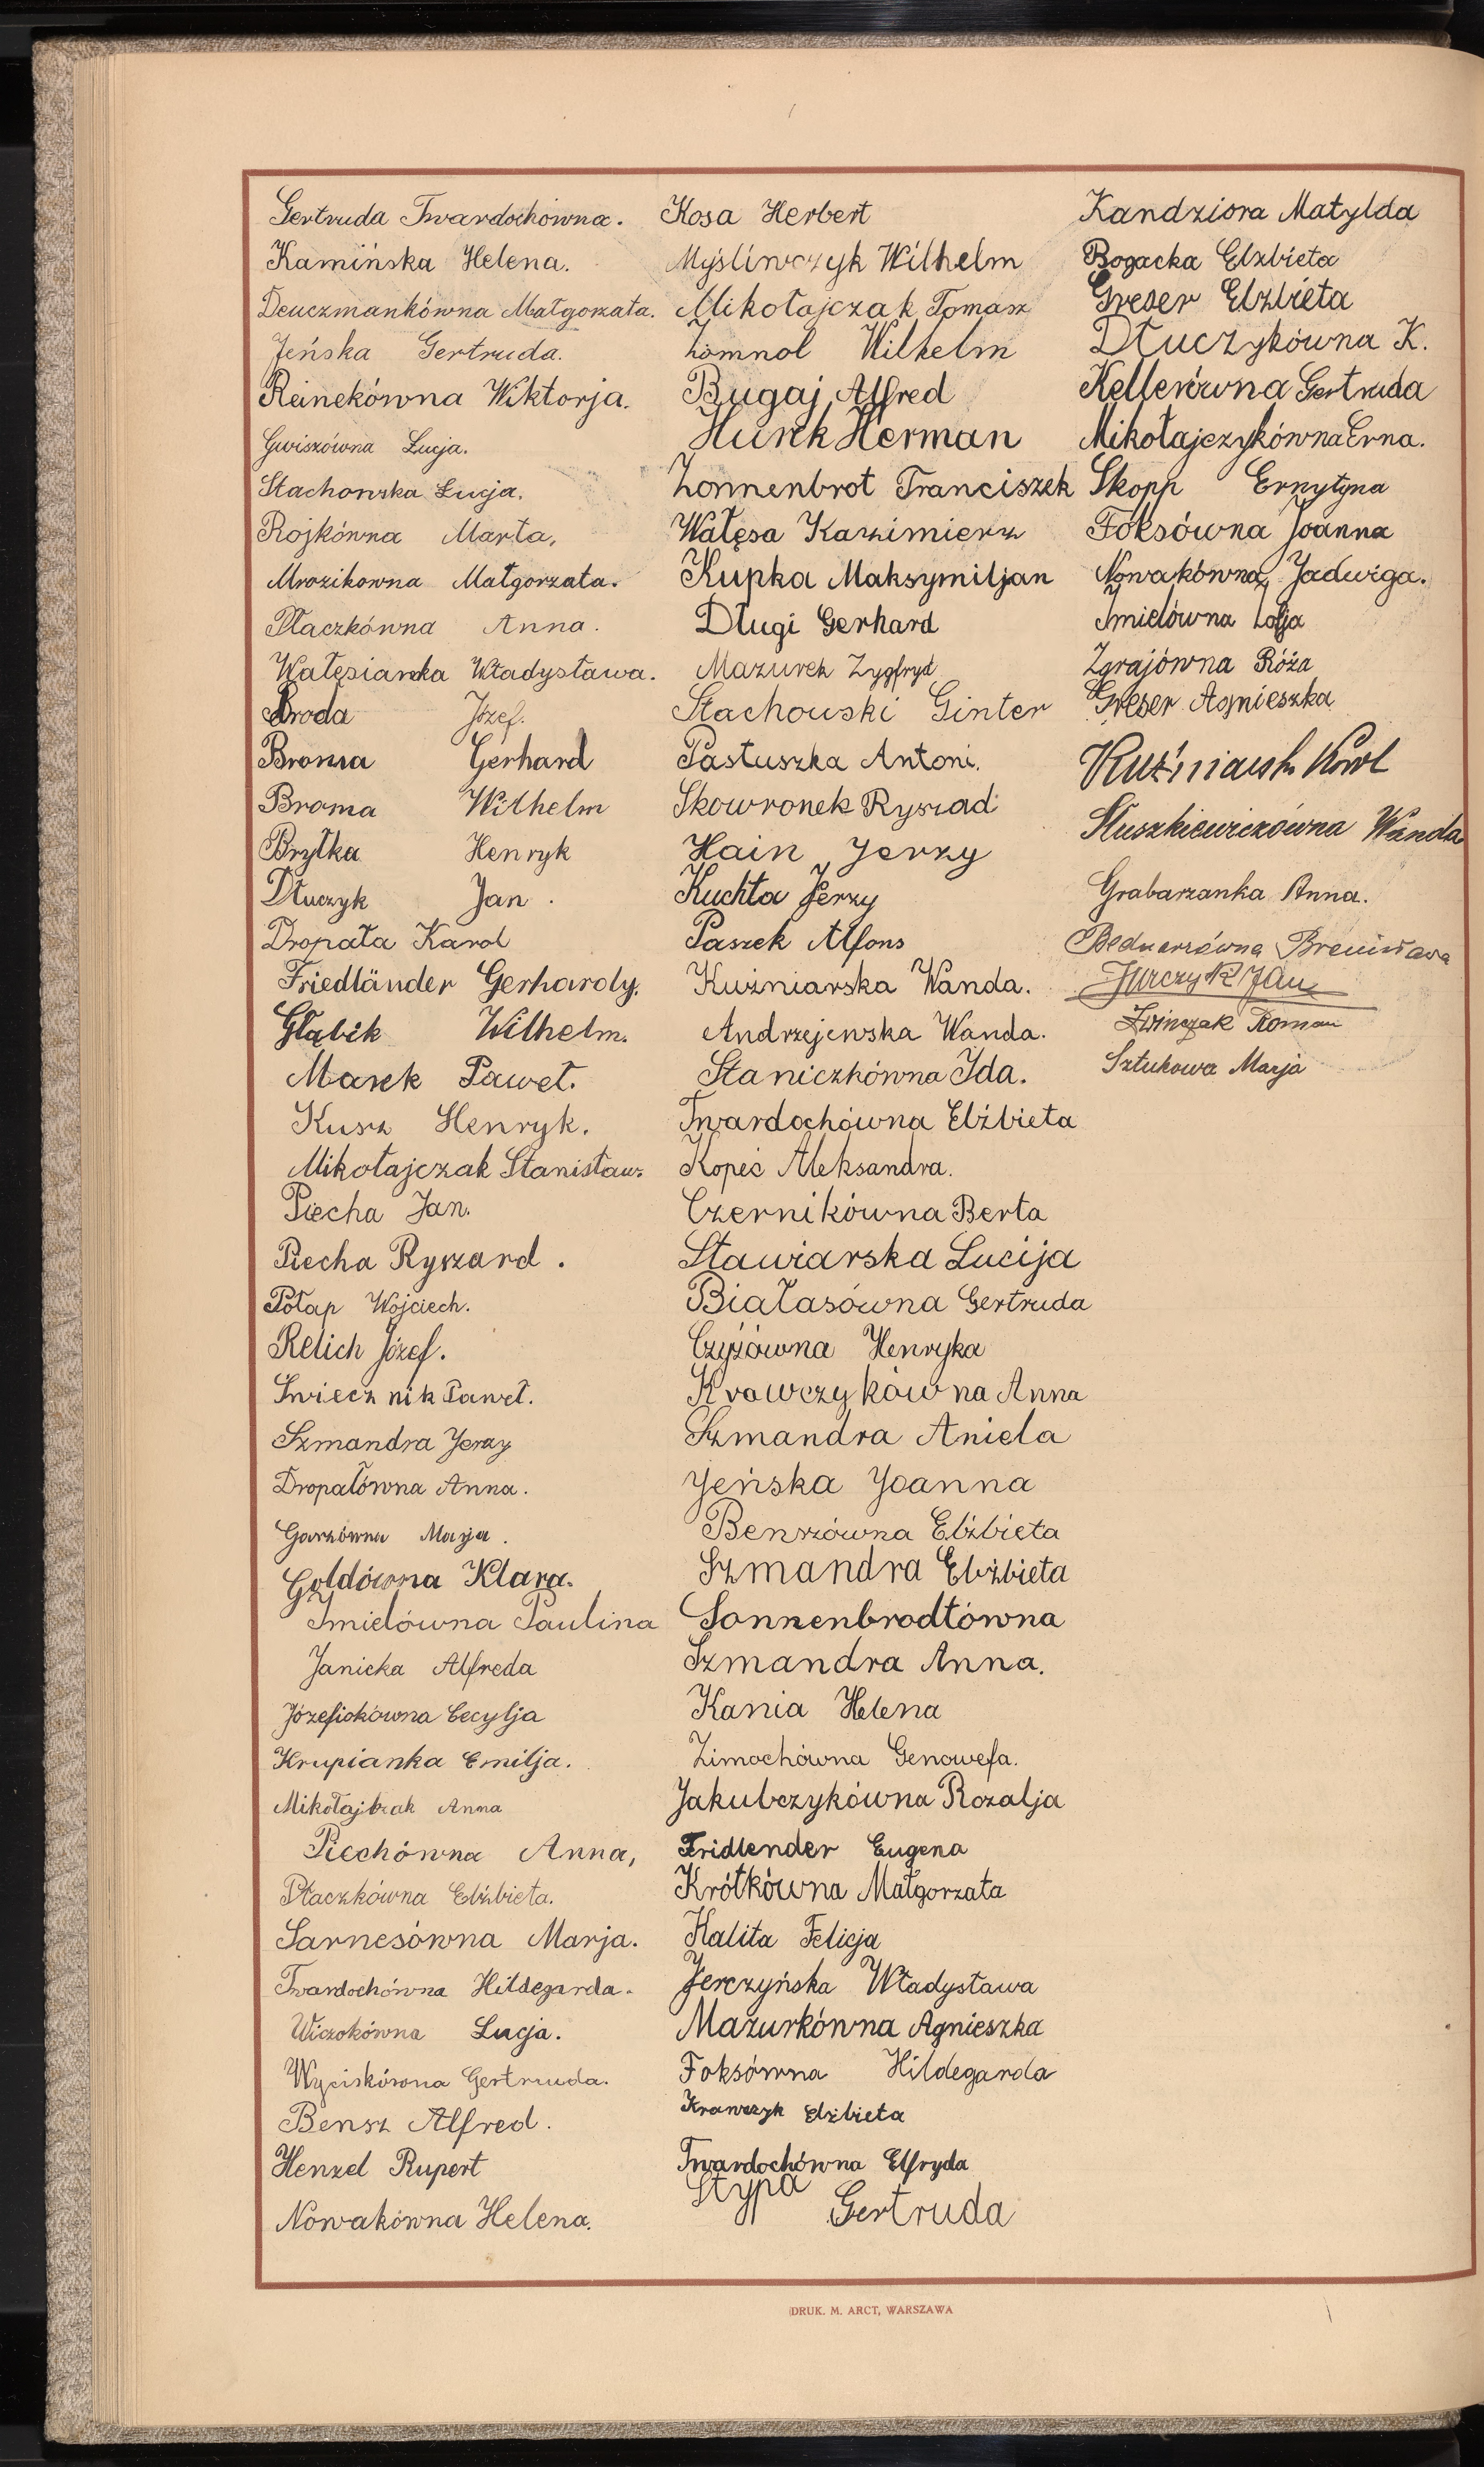 Gertruda Twardochówna.
Kamińska Helena.
Deuczmankówna Małgorzata.
Jeńska Gertruda.
Reinekówna Wiktorja.
Gwiszówna Łucja.
Stachowska Łucja.
Rojkówna Marta,
Mrozikowna Małgorzata.
Płaczkówna Anna.
Wałęsianka Władysława.
Broda Józef.
Broma Gerhard
Broma Wilhelm
Bryłka Henryk
Dłuczyk Jan.
Dropała Karol
Friedländer Gerhardy.
Głąbik Wilhelm.
Masek Paweł.
Kusz Henryk.
Mikołajczak Stanisław.
Piecha Jan.
Piecha Ryszard.
Połap Wojciech.
Relich Józef.
Świecznik Paweł.
Szmandra Jerzy
Dropałówna Anna.
Garzówna Marja.
Goldówna Klara.
Imielówna Paulina
Janicka Alfreda
Józefiokówna Cecylja
Krupianka Emilja.
Mikołajczak Anna
Piechówna Anna,
Płaczkówna Elżbieta.
Sarnesówna Marja.
Twardochówna Hildegarda.
Wiczokówna Łucja.
Wyciskówna Gertruda.
Bensz Alfred.
Henzel Rupert
Nowakówna Helena.
Kosa Herbert
Myśliwczyk Wilhelm
Mikołajczak Tomasz
Zomnol Wilhelm
Bugaj Alfred
Hurek Herman
Zonnenbrot Franciszek
Wałęsa Kazimierz
Kupka Maksymiljan
Długi Gerhard
Mazurek Zygfryd
Stachowski Ginter
Pastuszka Antoni.
Skowronek Ryszad
Hain Jerzy
Kuchta Jerzy
Paszek Alfons
Kuźniarska Wanda.
Andrzejewska Wanda.
Staniczkówna Ida.
Twardochówna Elżbieta
Kopeć Aleksandra.
Czernikówna Berta
Stawiarska Lucija
Białasówna Gertruda
Czyżówna Henryka
Krawczykówna Anna
Szmandra Aniela
Jeńska Joanna
Benszówna Elżbieta
Szmandra Elżbieta
Sonnenbrodtówna
Szmandra Anna.
Kania Helena
Zimochówna Genowefa.
Jakubczykówna Rozalja
Fridlender Eugena
Krótkówna Małgorzata
Kalita Felicja
Jerczyńska Władysława
Mazurkówna Agnieszka
Foksówna Hildegarda
Krawczyk Elżbieta
Twardochówna Elfryda
Stypa Gertruda
Kandziora Matylda
Bogacka Elżbieta
Greser Elżbieta
Dłuczykówna K.
Kellerówna Gertruda
Mikołajczykówna Erna.
Skopp Ernytyna
Foksówna Joanna
Nowakówna Jadwiga.
Imielówna Zofja
Zgrajówna Róża
Greser Agnieszka
Kuźniarski Karol
Słuszkiewiczówna Wanda
Grabarzanka Anna.
Bednarzówna Bronisława
Jurczyk Jan
Świnczak Roman
Sztukowa Marja
DRUK. M. ARCT, WARSZAWA